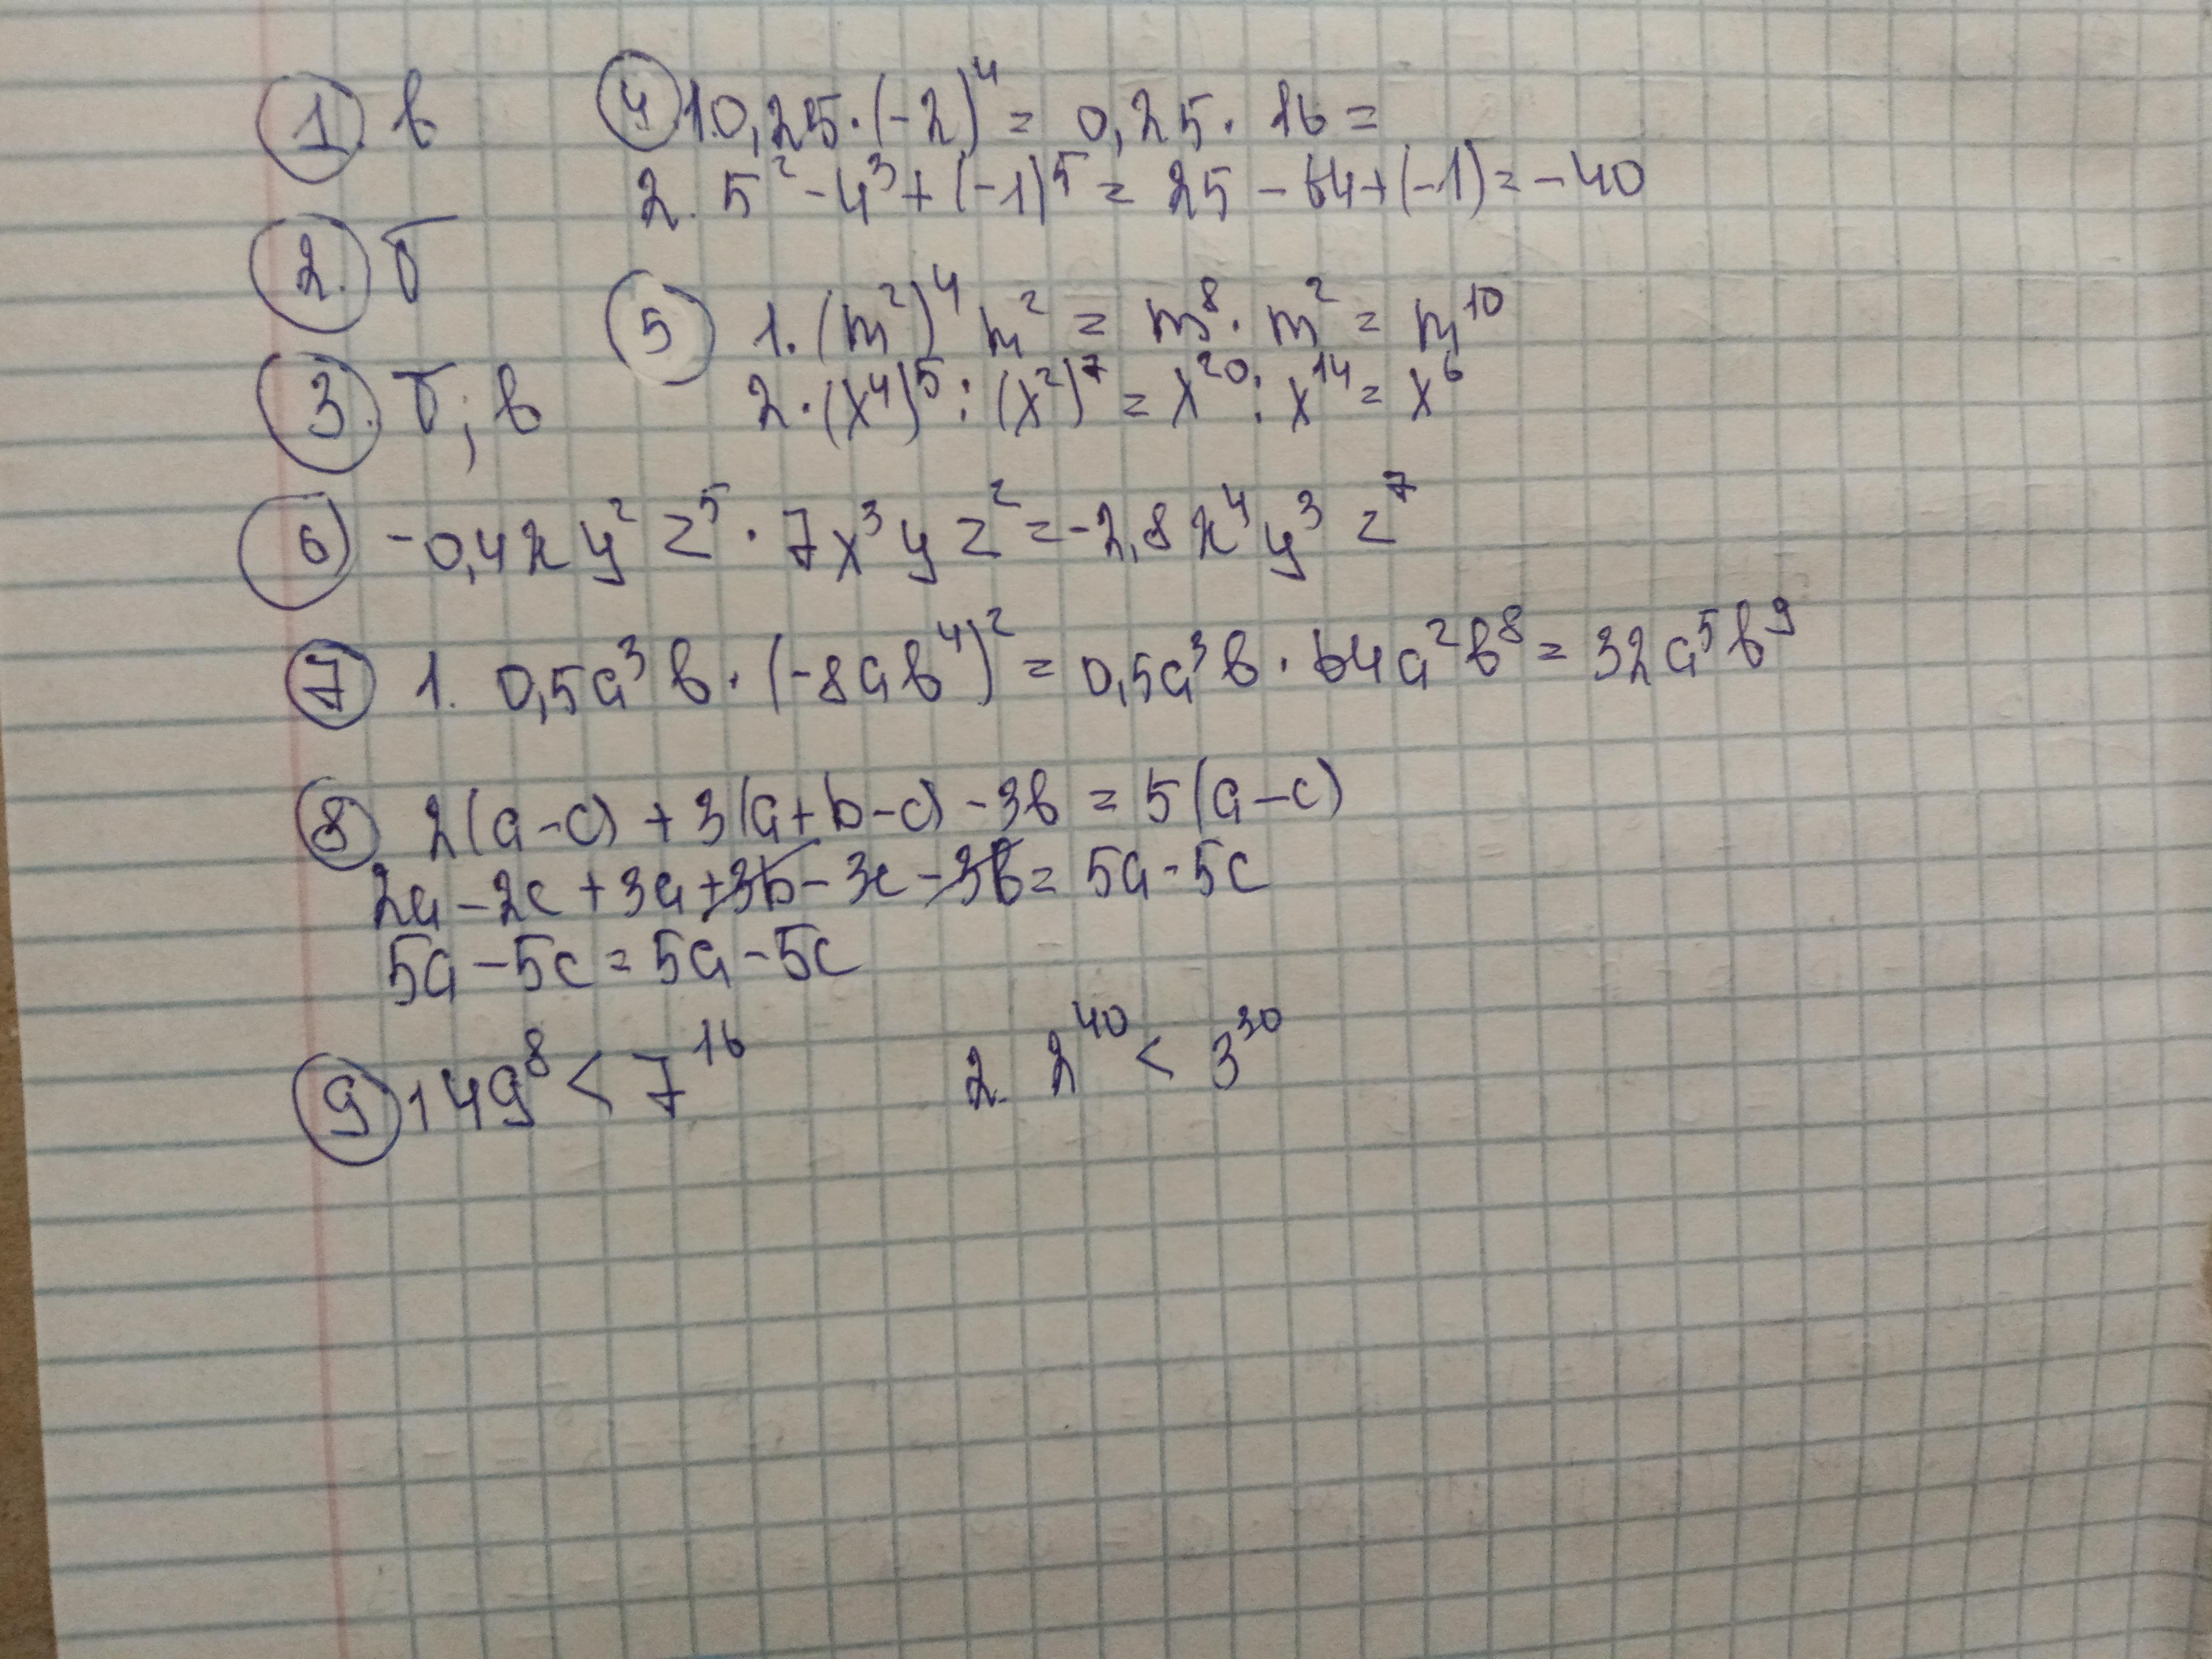 1. в
2. б
3. б; в
4 1. 0,25·(-2)⁴ = 0,25 · 16 =
2. 5² - 4³ + (-1)⁵ = 25 - 64 + (-1) = -40
5 1. (m²)⁴ m² = m⁸ · m² = m¹⁰
2. (x⁴)⁵ : (x²)⁷ = x²⁰ : x¹⁴ = x⁶
6 -0,4x y² z⁵ · 7x³ y z² = -2,8 x⁴ y³ z⁷
7 1. 0,5a³ b · (-8ab⁴)² = 0,5a³b · 64a²b⁸ = 32a⁵b⁹
8 2(a-c) + 3(a+b-c) - 3b = 5(a-c)
2a - 2c + 3a + 3b - 3c - 3b = 5a - 5c
5a - 5c = 5a - 5c
9 1 49⁸ < 7¹⁶ 2. 2⁴⁰ < 3³⁰